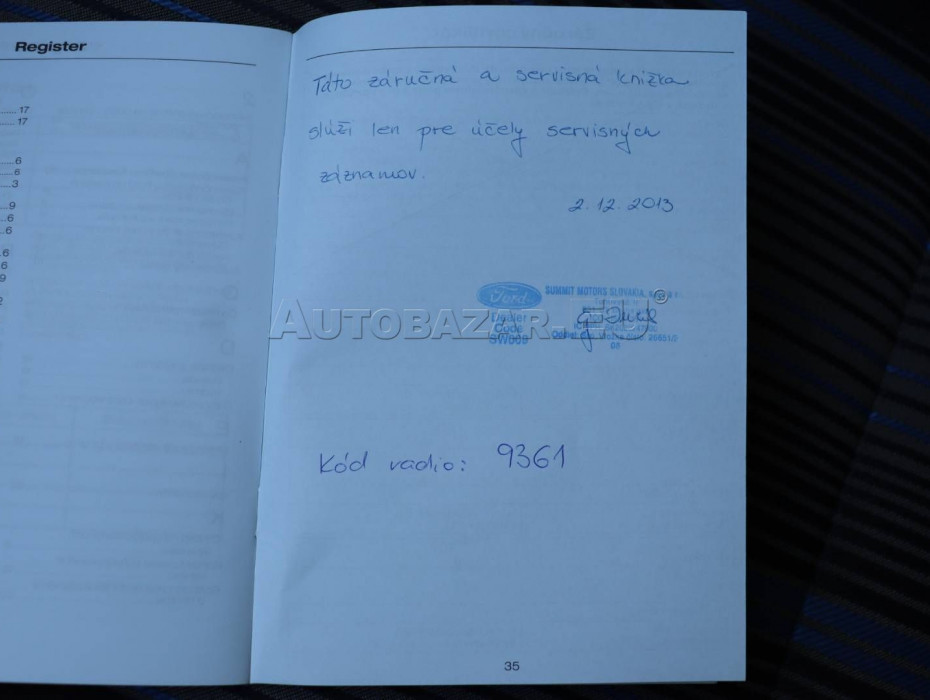 Register
..... 17
..... 17
...6
...6
...3
...9
...6
...6
.6
6
9
2
Táto záručná a servisná knižka
slúži len pre účely servisných
záznamov.
2.12.2013
Ford
SUMMIT MOTORS SLOVAKIA,
Dealer
Code
SW009
08
AUTOBAZAR.EU
Kód radio: 9361
35